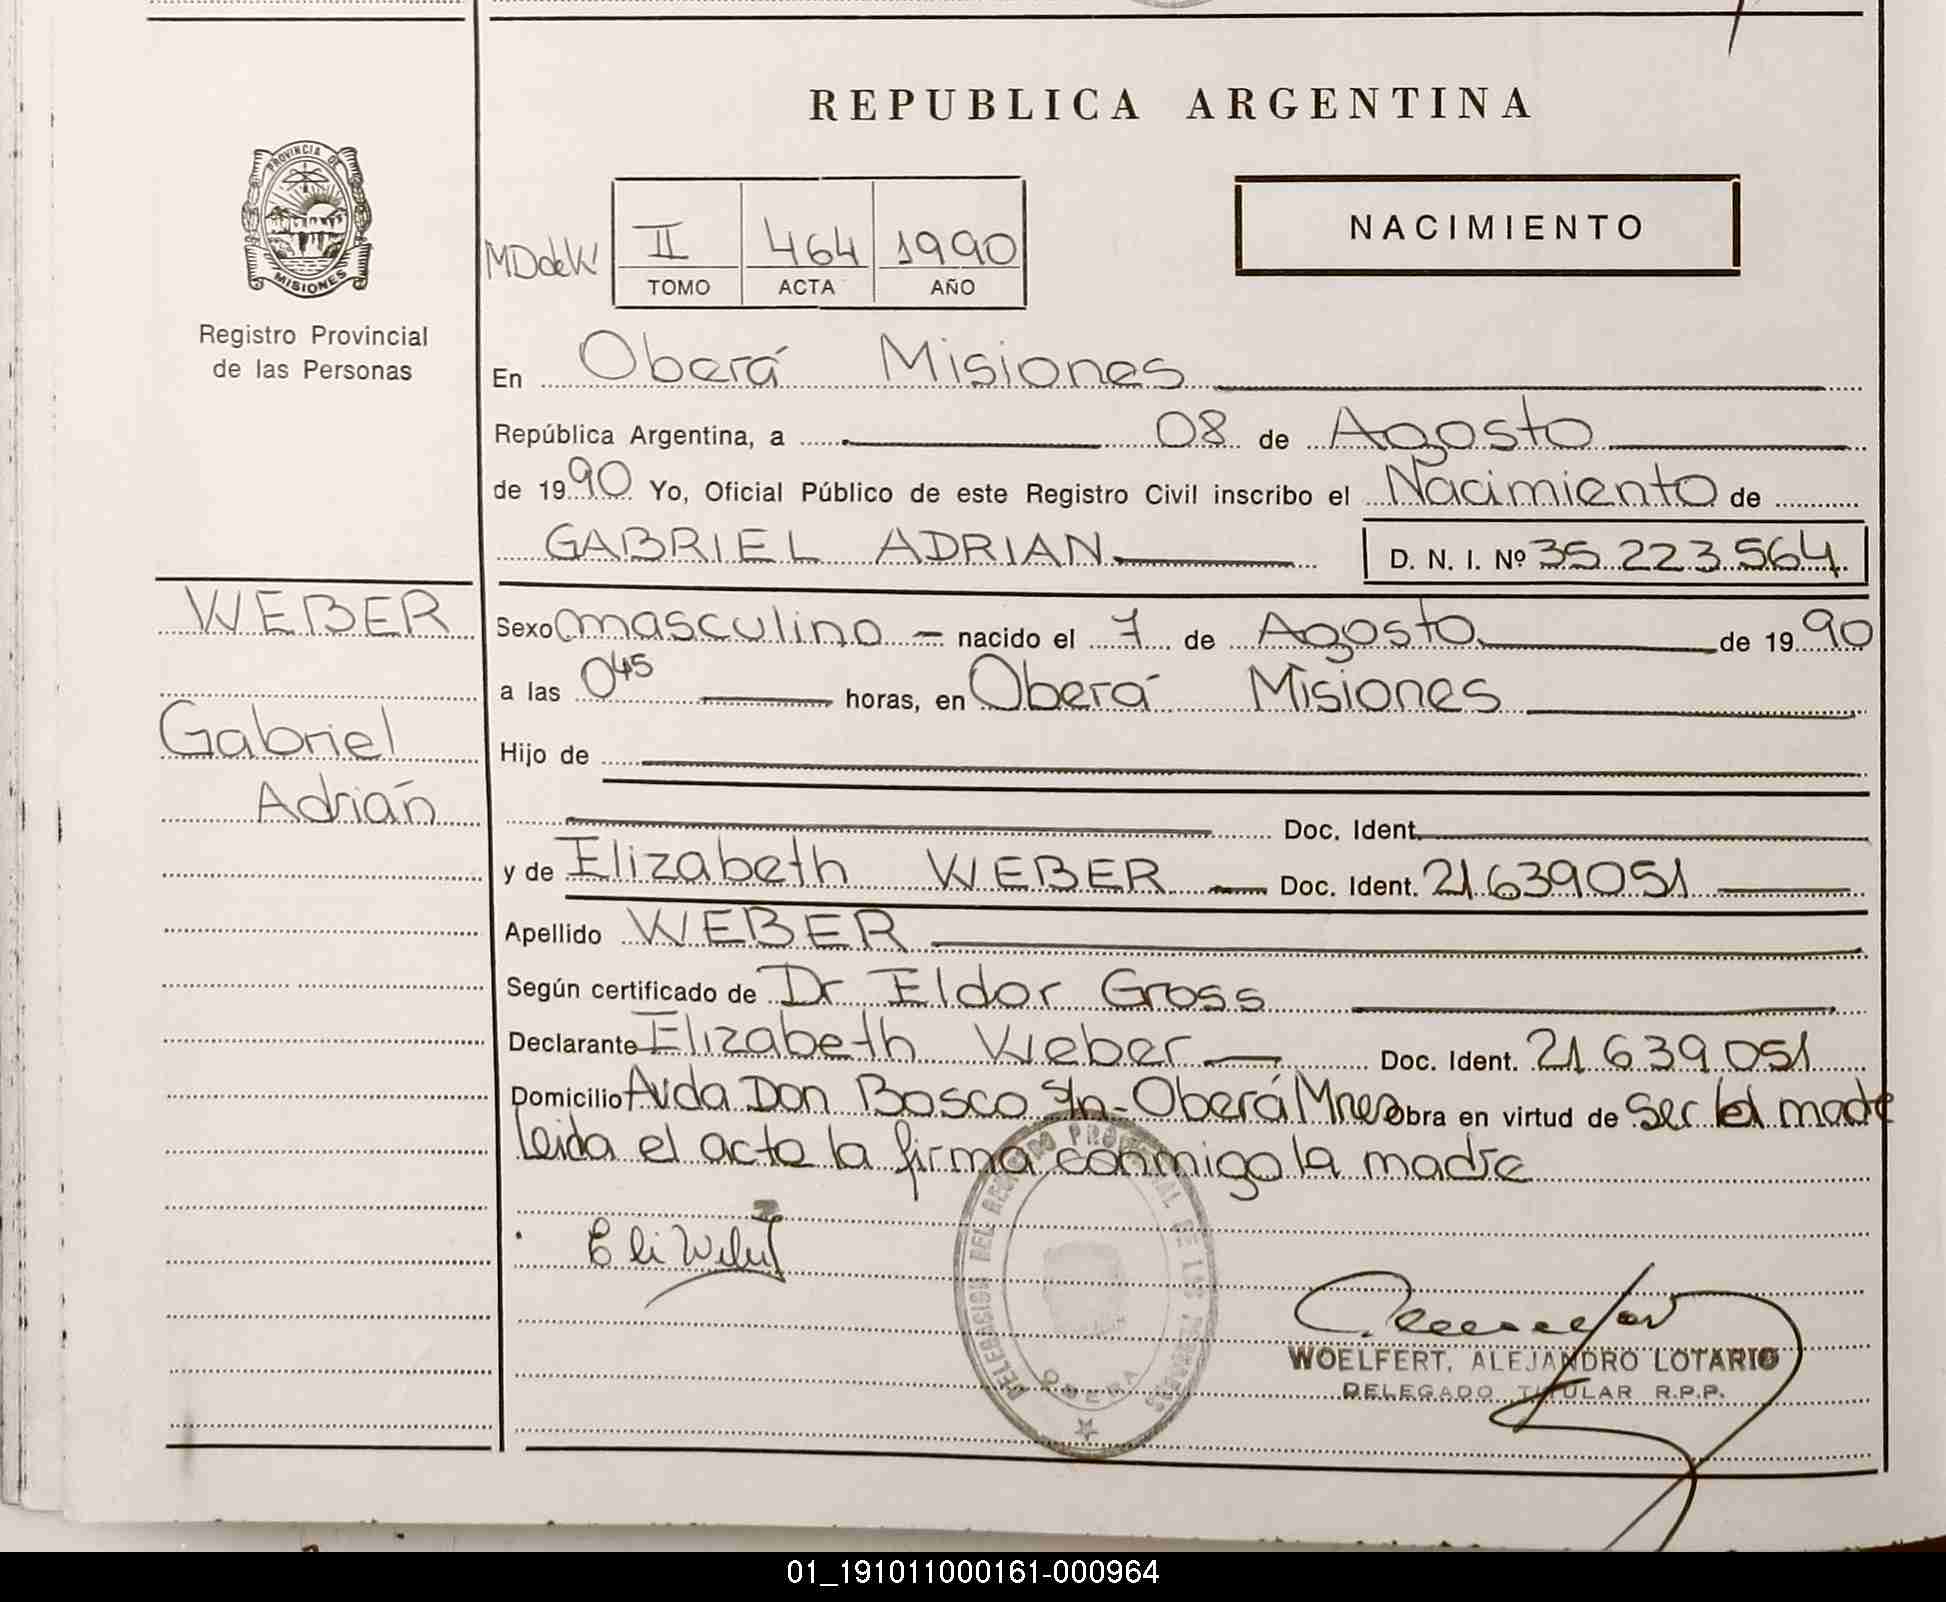 REPUBLICA ARGENTINA
PROVINCIA DE
MISIONES
Registro Provincial
de las Personas
MDdeW
II 464 1990
TOMO ACTA AÑO
NACIMIENTO
En Oberá Misiones
República Argentina, a 08 de Agosto
de 1990 Yo, Oficial Público de este Registro Civil inscribo el Nacimiento de
GABRIEL ADRIAN D. N. I. Nº 35.223.564
WEBER
Gabriel
Adrián
Sexo masculino nacido el 7 de Agosto de 1990
a las 0 45 horas, en Oberá Misiones
Hijo de
Doc. Ident.
y de Elizabeth WEBER Doc. Ident. 21639051
Apellido WEBER
Según certificado de Dr Eldor Gross
Declarante Elizabeth Weber Doc. Ident. 21.639.051
Domicilio Avda Don Bosco s/n - Oberá Mnes obra en virtud de ser la madre
leida el acta la firma conmigo la madre
DELEGACION DEL REGISTRO PROVINCIAL DE LAS PERSONAS
OBERA
WOELFERT, ALEJANDRO LOTARIO
DELEGADO TITULAR R.P.P.
01_191011000161-000964